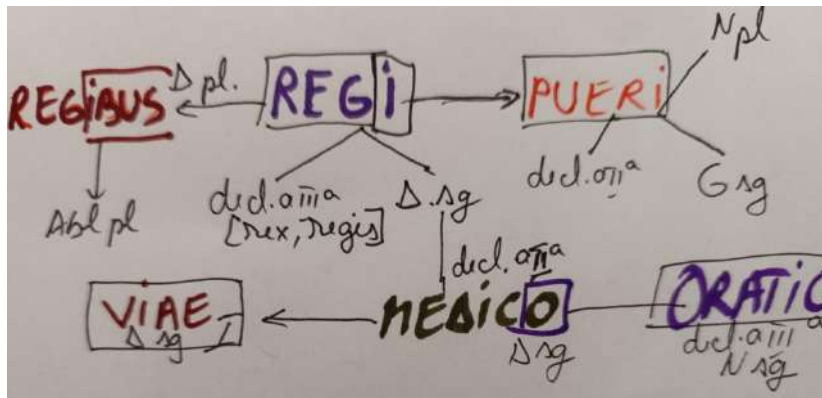 N pl
REGiBUS
D pl.
REGi
PUERi
Abl pl
decl. a III a
[rex, regis]
D. sg
decl. a II a
G sg
decl. a II a
ViAE
D sg I
MEDiCO
D sg
ORATIO
decl. a III a
N sg